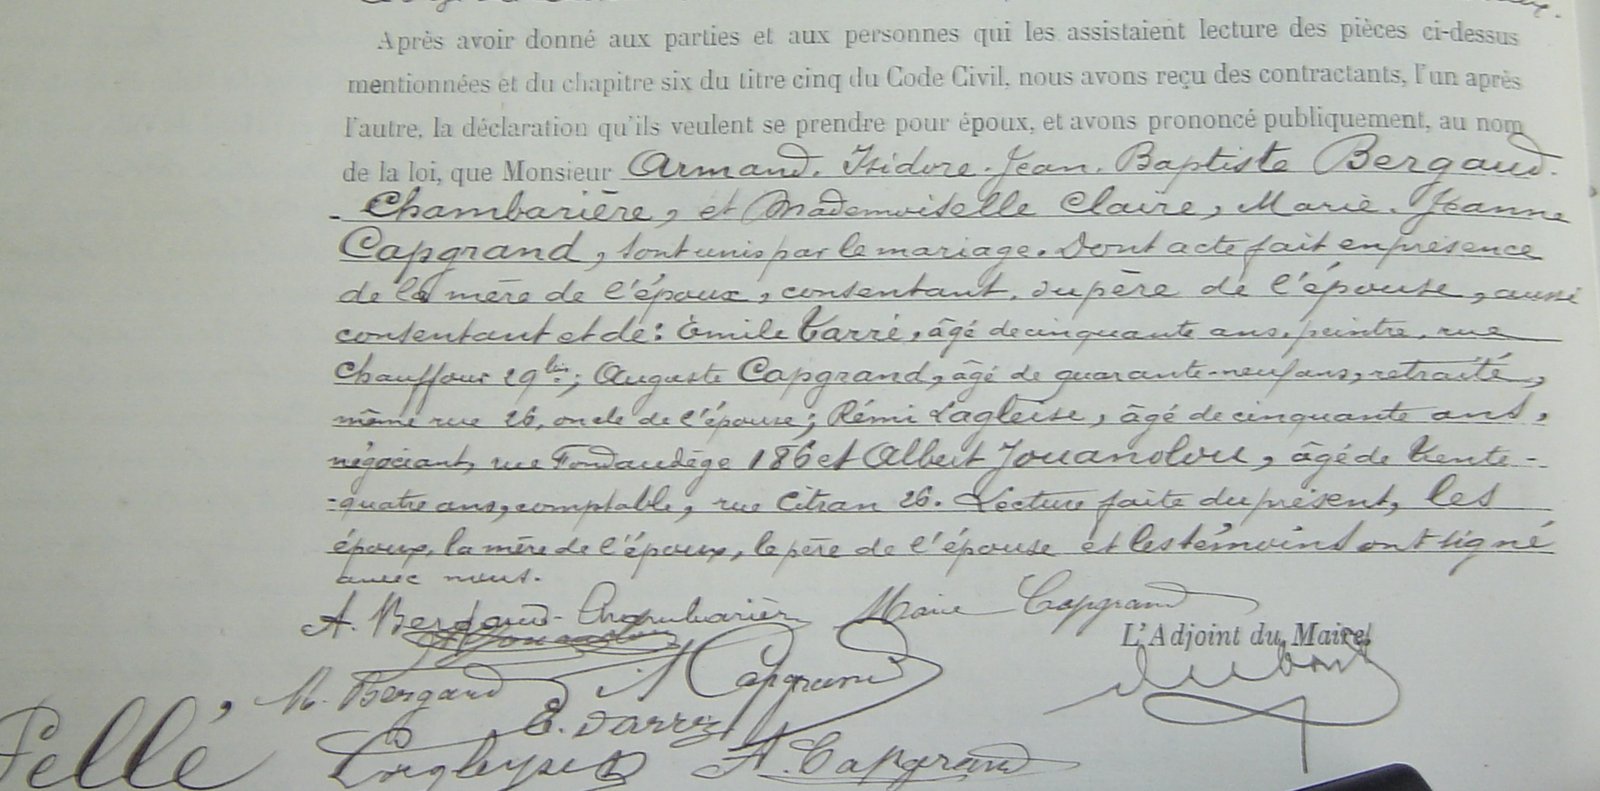 Après avoir donné aux parties et aux personnes qui les assistaient lecture des pièces ci-dessus
mentionnées et du chapitre six du titre cinq du Code Civil, nous avons reçu des contractants, l'un après
l'autre, la déclaration qu'ils veulent se prendre pour époux, et avons prononcé publiquement, au nom
de la loi, que Monsieur Armand. Isidore. Jean. Baptiste Bergaud.
- Chambarière, et Mademoiselle Claire, Marie. Jeanne
Capgrand, sont unis par le mariage. Dont acte fait en présence
de la mère de l'époux, consentant. du père de l'épouse, aussi
consentant et de: Emile Tarré, âgé de cinquante ans, peintre, rue
Chauffour 29 bis; Auguste Capgrand, âgé de quarante-neuf ans, retraité,
même rue 26, oncle de l'épouse; Rémi Lagleise, âgé de cinquante ans,
négociant, rue Fondaudège 186 et Albert Jouanolou, âgé de trente-
-quatre ans, comptable, rue Citran 26. Lecture faite du présent, les
époux, la mère de l'époux, le père de l'épouse et les témoins ont signé
avec nous.
A. Bergaud-Chambarière Marie Capgrand
L'Adjoint du Maire
M. Bergaud A Capgrand
E. Darré
Pellé
A. Capgrand